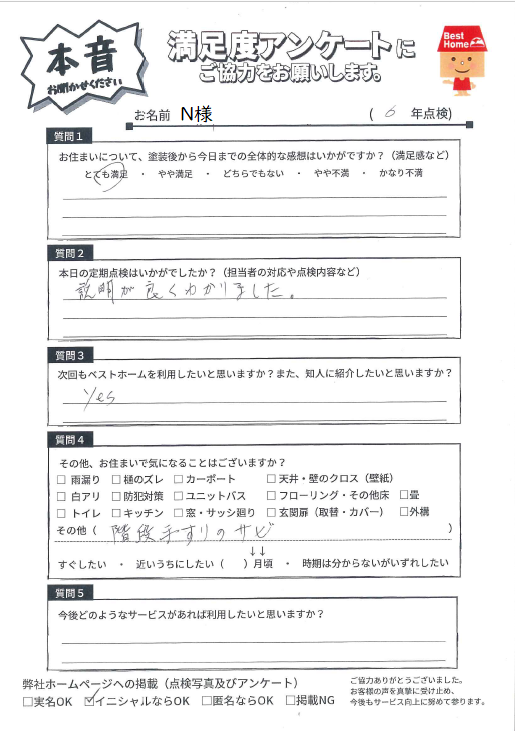 本音
お聞かせください
満足度アンケートに
ご協力をお願いします。
Best
Home
お名前 N様 ( 6 年点検)
質問1
お住まいについて、塗装後から今日までの全体的な感想はいかがですか？（満足感など）
とても満足 ・ やや満足 ・ どちらでもない ・ やや不満 ・ かなり不満
質問2
本日の定期点検はいかがでしたか？（担当者の対応や点検内容など）
説明が良くわかりました。
質問3
次回もベストホームを利用したいと思いますか？また、知人に紹介したいと思いますか？
Yes
質問4
その他、お住まいで気になることはございますか？
□ 雨漏り □ 樋のズレ □ カーポート □ 天井・壁のクロス（壁紙）
□ 白アリ □ 防犯対策 □ ユニットバス □ フローリング・その他床 □畳
□ トイレ □ キッチン □ 窓・サッシ廻り □ 玄関扉（取替・カバー） □外構
その他（ 階段手すりのサビ ）
↓↓
すぐしたい ・ 近いうちにしたい（ ）月頃 ・ 時期は分からないがいずれしたい
質問5
今後どのようなサービスがあれば利用したいと思いますか？
弊社ホームページへの掲載（点検写真及びアンケート）
□実名OK ☑イニシャルならOK □匿名ならOK □掲載NG
ご協力ありがとうございました。
お客様の声を真摯に受け止め、
今後もサービス向上に努めて参ります。